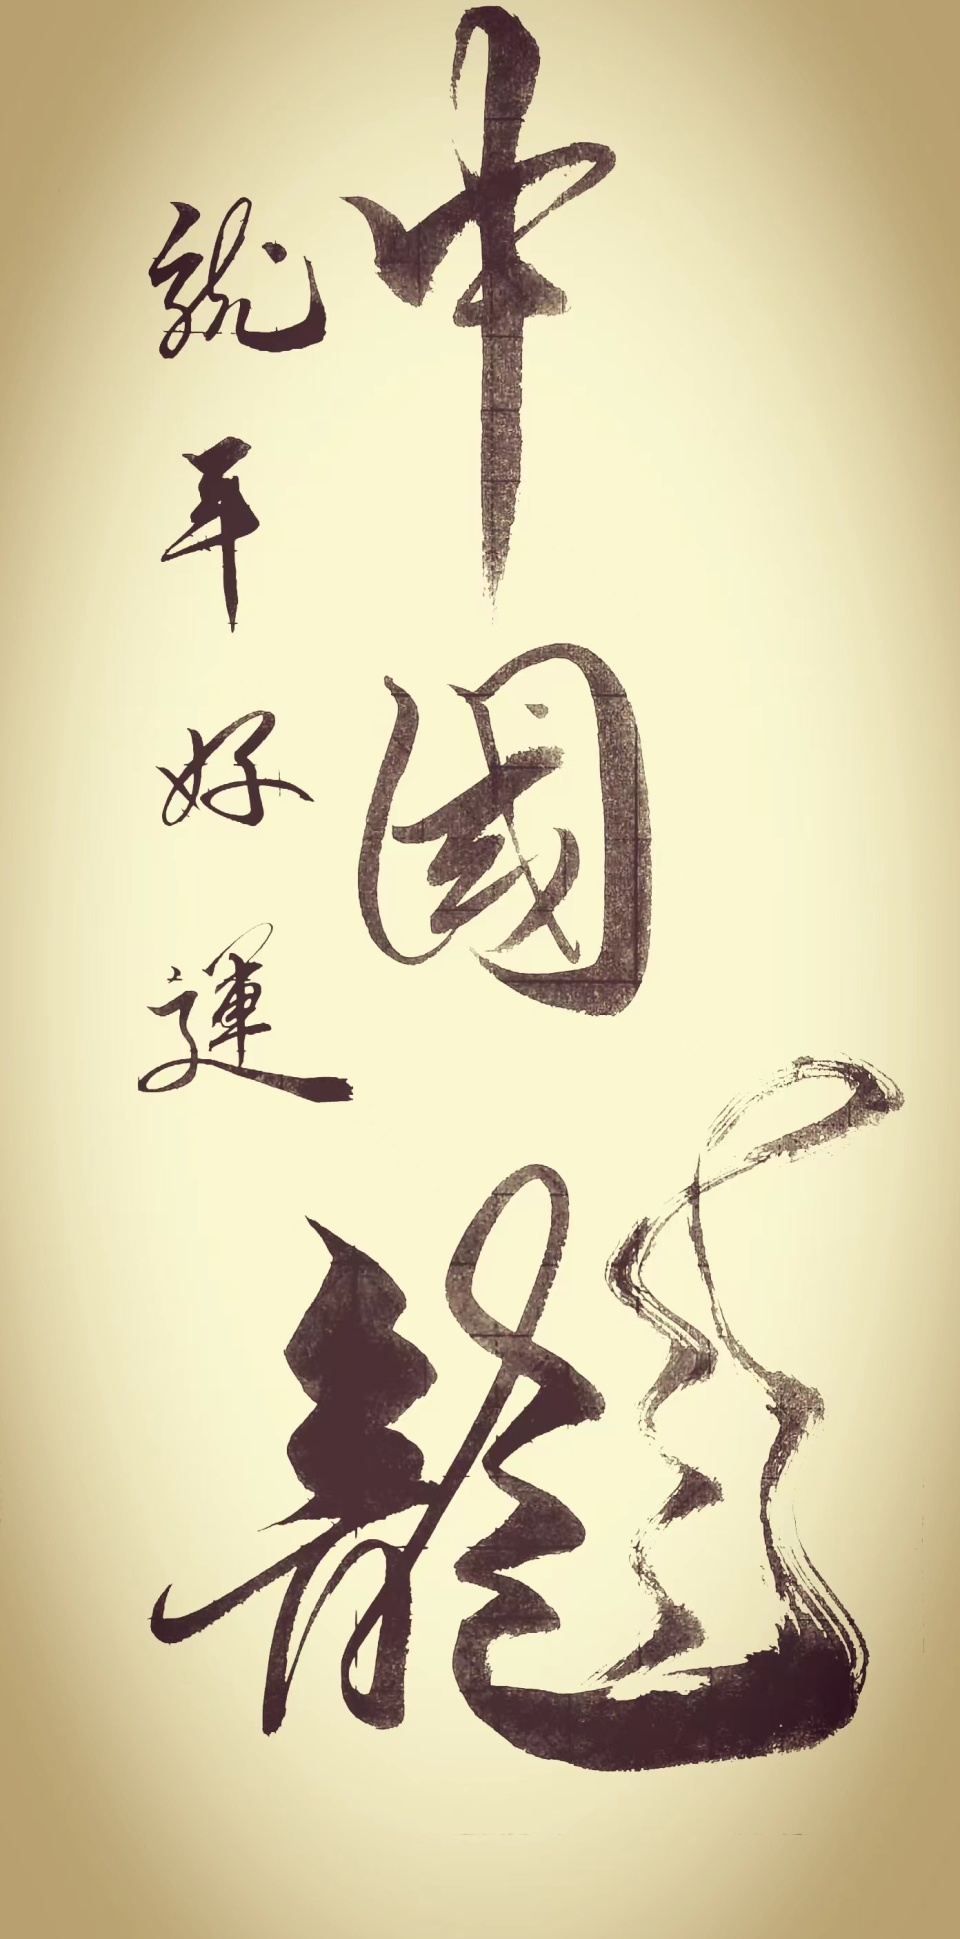 中國龍
龍年好運